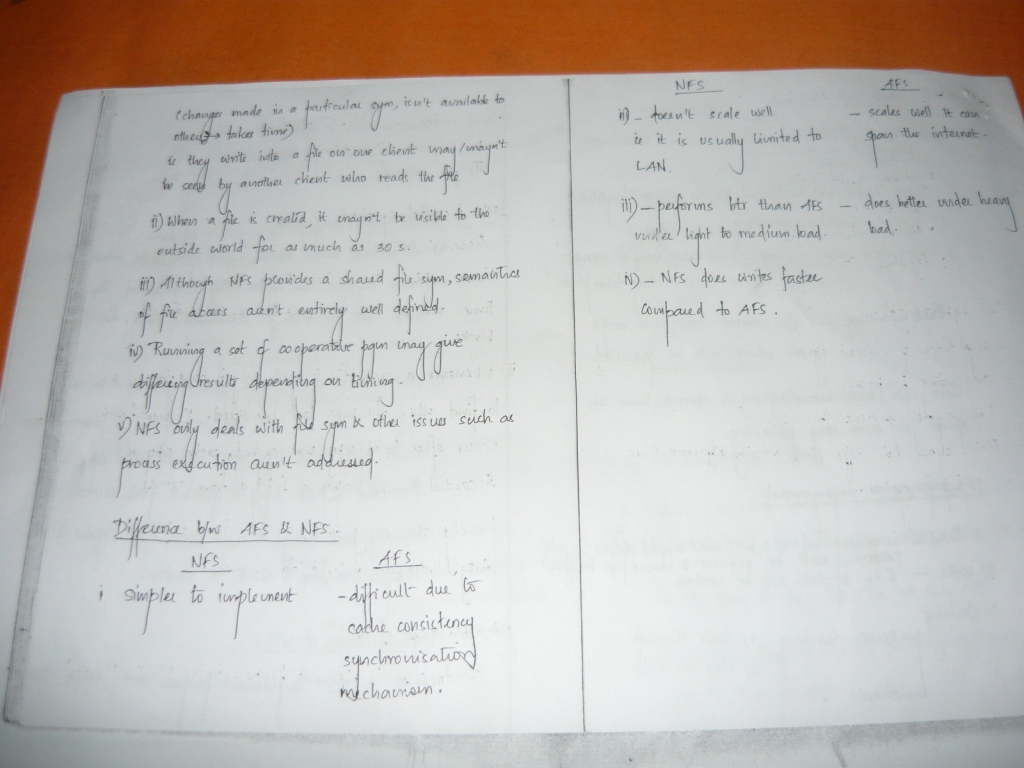 (changes made in a particular sym, isn't available to
others → takes time)
ie they write into a file on one client may/mayn't
be seen by another client who reads the file
ii) When a file is created, it mayn't be visible to the
outside world for as much as 30 s.
iii) Although NFS provides a shared file sym, semantics
of file access aren't entirely well defined.
iv) Running a set of cooperative pgm may give
differing results depending on timing.
v) NFS only deals with file sym & other issues such as
process execution aren't addressed.
Difference b/w AFS & NFS.
NFS AFS
i simpler to implement - difficult due to
cache consistency
synchronisation
mechanism.
NFS AFS
ii) - doesn't scale well - scales well it can
ie it is usually limited to span the internet.
LAN.
iii) - performs btr than AFS - does better under heavy
under light to medium load. load.
iv) - NFS does writes faster
compared to AFS.